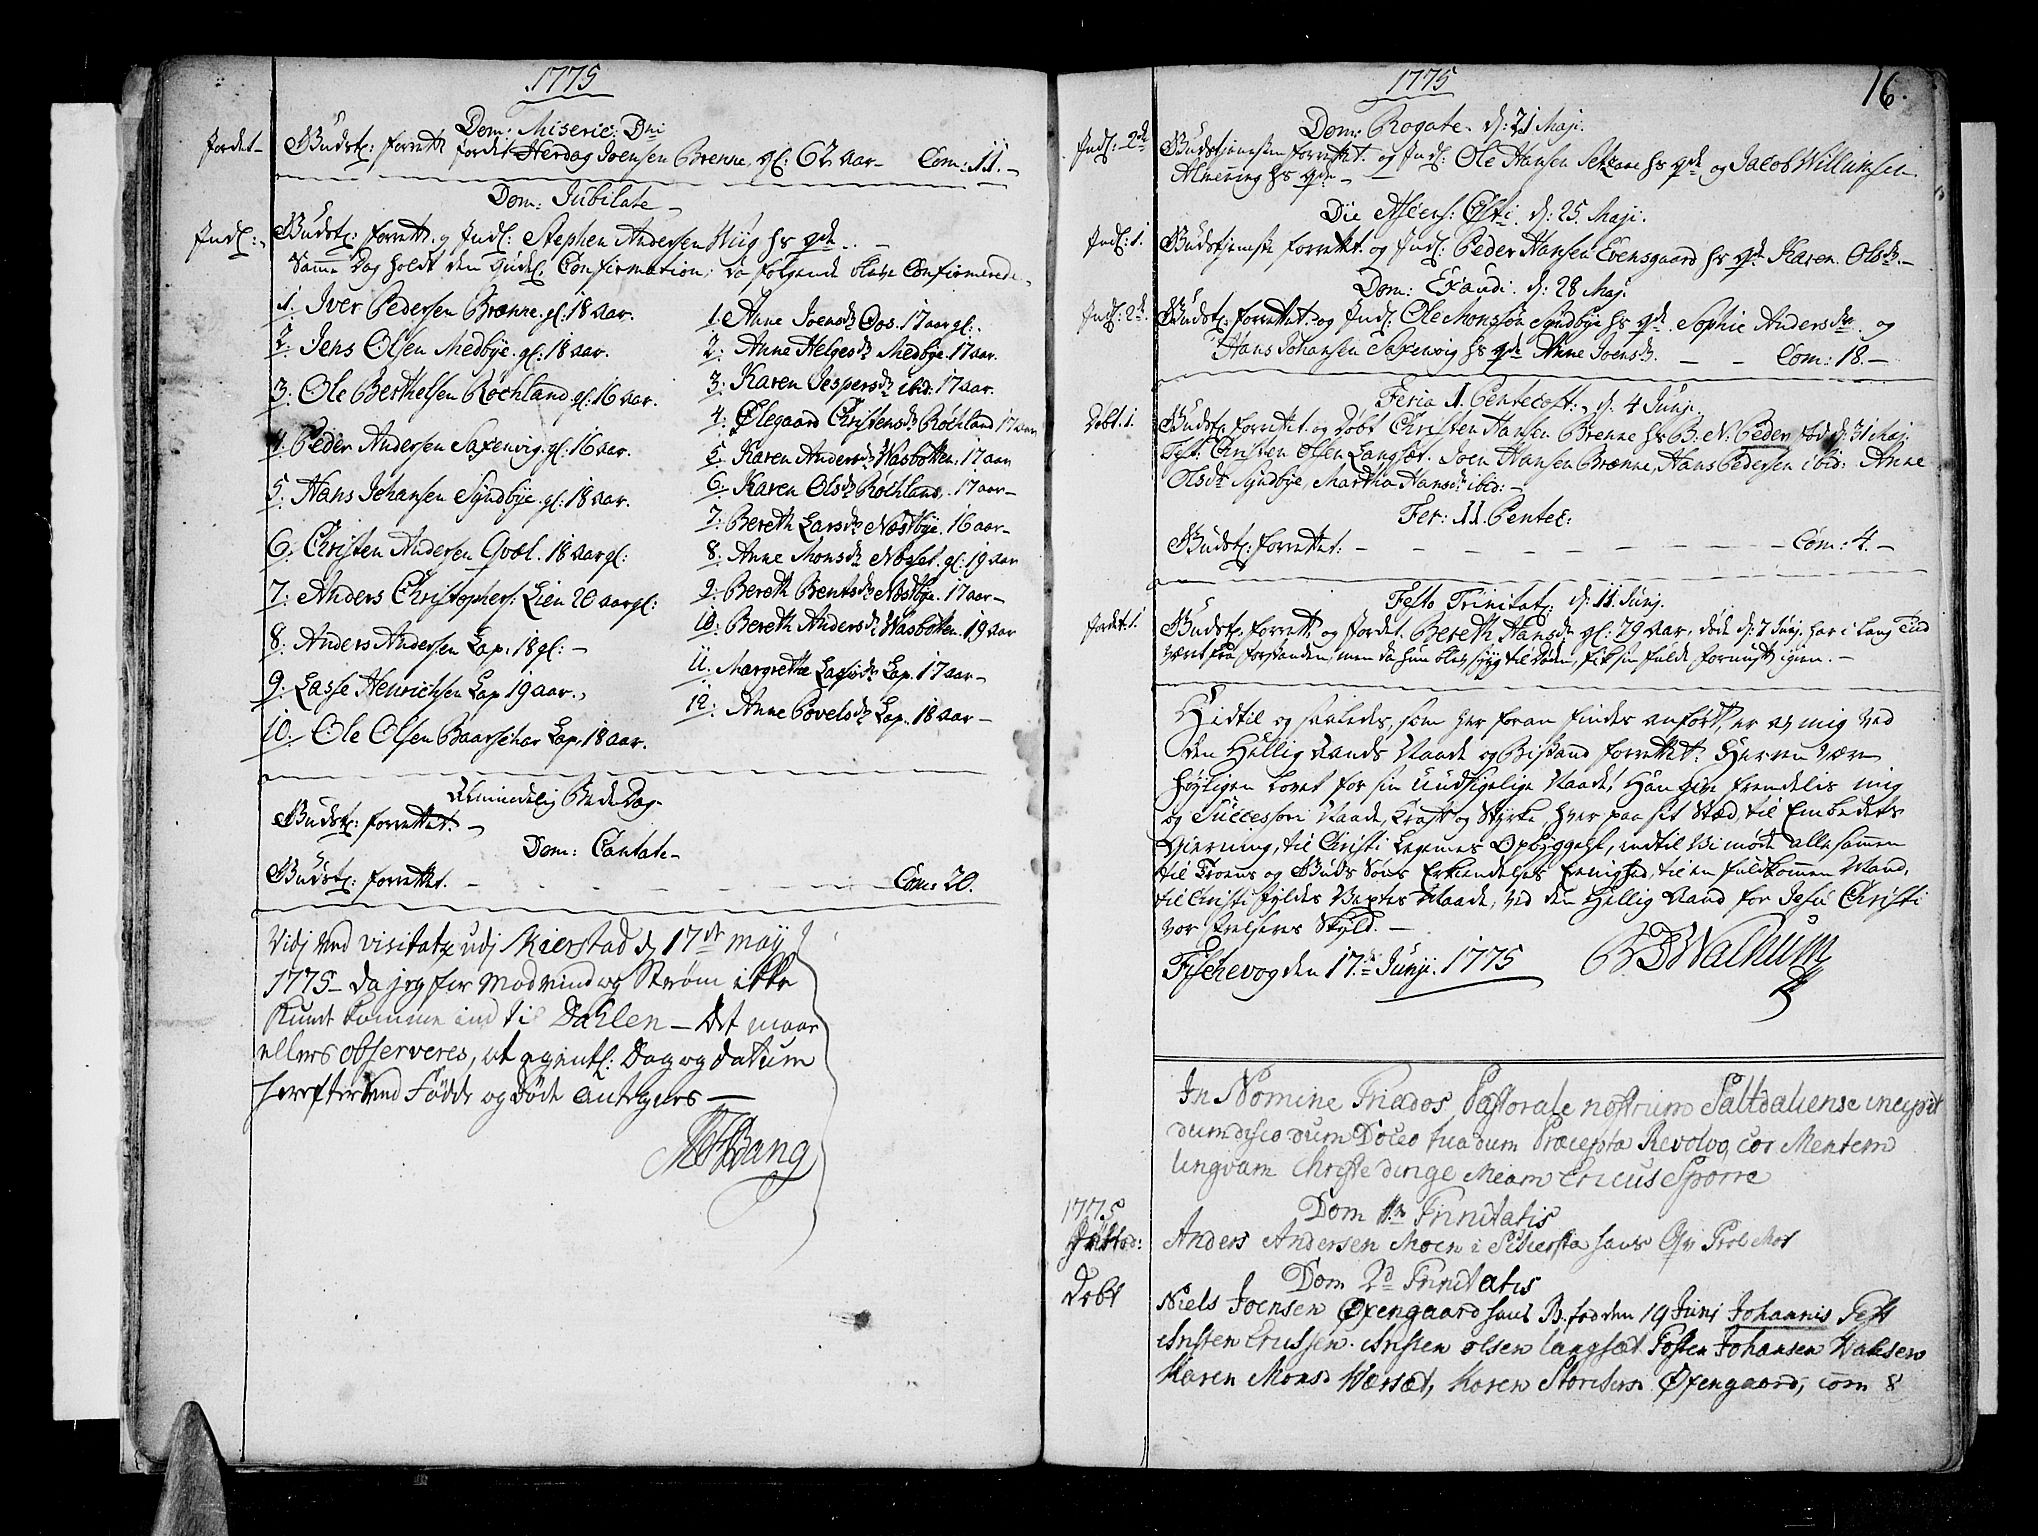 1775
Dom: Miseric: Dni
Jordet
Gudstj: forrett. jordet Herdag Joensen Brenne gl: 62 aar Com: 11.
Dom: Jubilate
Indl:
Gudstj: forrett. og Indl: Stephen Andersen Wiig hs qde
Samme Dag holdt den Gudel: Confirmation, da følgende bleve Confirmerede
1. Iver Pedersen Brænne gl: 18 aar.
2. Jens Olsen Medbye gl: 18 aar.
3. Ole Berthelsen Røchland gl: 16 aar.
4. Peder Andersen Saxenvig gl: 16 aar.
5. Hans Johansen Syndbye gl: 18 aar.
6. Christen Andersen Qvæl. 18 aar gl:
7. Anders Christophers: Lien 20 aar gl:
8. Anders Andersen Lap. 18 gl:
9. Lasse Henrichsen Lap 19 aar.
10. Ole Olsen Baarschar Lap. 18 aar.
1. Anne Joensdr Oos. 17 aar gl:
2. Anne Helgesdr Medbye. 17 aar.
3. Karen Jespersdr ibid: 17 aar.
4. Ølegaard Christensdr Røchland 17 aar
5. Karen Andersdr Wasbotten. 17 aar
6. Karen Olsdr Røchland. 17 aar
7. Bereth Larsdr Næstbye. 16 aar
8. Anne Monsdr Næset. gl: 19 aar
9. Bereth Bentsdr Næstbye. 17 aar
10. Bereth Andersdr Wasbotten. 19 aar
11. Margrethe Lassedr Lap. 17 aar
12. Anne Povelsdr Lap. 18 aar
Almindelig Bede Dag
Gudstj: forrettet.
Dom: Cantate
Gudstj: forrettet. Com: 20.
Vidj ved visitatz udj Skierstad dj 17de may
1775 da jeg for Modvind og Strøm ikke
kunde komme ind til Dahlen Det maae
ellers observeres, at egentl: Dag og datum
herefter ved Fødde og Døde antegnes
Bang
1775
16.
Dom: Rogate. d: 21 Maji.
Indl: 2de
Gudstjenesten forrettet. og Indl: Ole Hansen hs qde og Jacob Willumsen
Almening hs qde
Die Ascens: Chsti. d: 25. Maji.
Indl: 1.
Gudstjeneste forrettet. og Indl: Peder Hansen Evensgaard hs qde Karen Olsdr.
Dom: Exaudi. d: 28 Maj.
Indl: 2de
Gudstj: forrettet. og Indl: Ole Monsøn Syndbye hs qde Sophie Andersdtr og
Hans Johansen Saxenvig hs qde Anne Joensdr. Com: 18.
Feria I. Pentecost: d. 4 Junj.
Døbt. 1.
Gudstj: forrettet og døbt Christen Hansen Brenne hs B. N. Peder, fød d: 31 Maj.
Test: Christen Olsen Langsæt. Joen Hansen Brænne, Hans Pedersen ibid: Anne
Olsdr Syndbye, Martha Hansdr ibid:
Fer: II. Pentec:
Gudstj: forrettet. Com: 4.
Festo Trinitat: d: 11. Junj.
Jordet. 1.
Gudstj: forrett. og Jordet. Bereth Hansdr gl: 79 aar, døde d: 7 Junj. har i lang Tiid
været fra forstanden, men da hun blev syg til Døden, fik sin fulde fornuft igien.
Hidtil og saaledes, som her foran findes anført, er af mig ved
den Hellig Aands Naade og Bistand forrettet. Herren være
høyligen lovet for sin uudsigelige Naade! Han give fremdelis mig
og Successori Naade, Kraft og Styrke, hver paa sit Stæd, til Embedets
Gierning, til Christi Legemes Opbyggelse, indtil Vi møde allesamen
til Troens og Guds Søns Erkiendelses Eenighed, til en fuldkommen Mand,
til Christi Fyldes Vextes Maade, ved den Hellig Aand for Jesu Christi
vor Frelseres Skyld.
Fischevog den 17de Junji. 1775 Walhum
In Nomine Triados Pastorale nostrum Saltdaliense incipit
dum disco dum Doceo tua dum Præcepta Revolvo, cor Mentem
lingvam Christe dirige Meam Ericus Sporre
1775
Dom 1ma Trinitatis
Anders Andersen Moen i Schiersta hans
Dom 2d Trinitatis
Døbt
Niels Joensen Øxengaard hans B. fød den 19 Juni Johannis Test
Christen Ericssen. Christen olsen langsæt Tosten Johansen
Karen Monsd Wærsæt, Karen Øxengaard, com 8